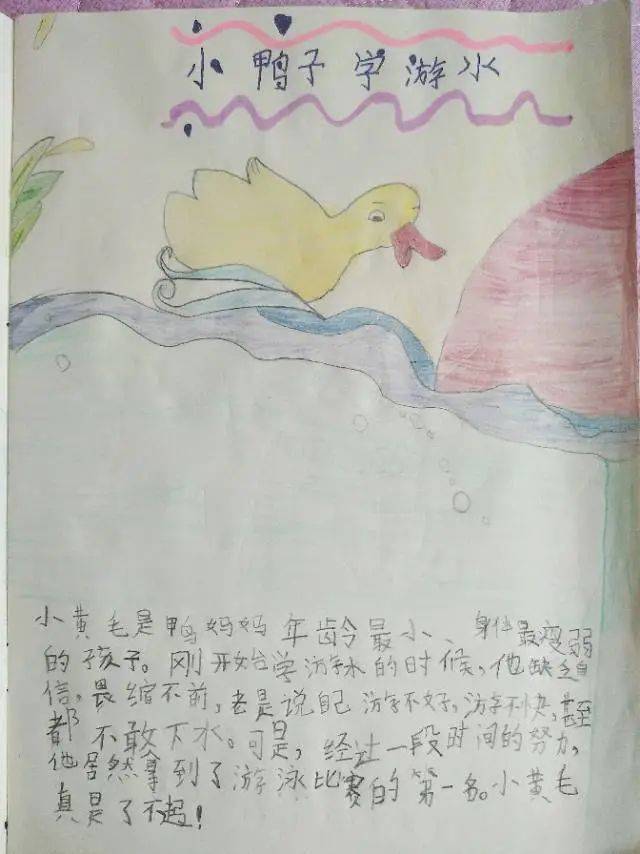 小鸭子学游水
小黄毛是鸭妈妈年龄最小、身体最瘦弱
的孩子。刚开始学游水的时候,他缺乏自
信,畏缩不前,老是说自己游好不好,游得不快,甚至
都不敢下水。可是,经过一段时间的努力,
他居然拿到了游泳比赛的第一名。小黄毛
真是了不起!